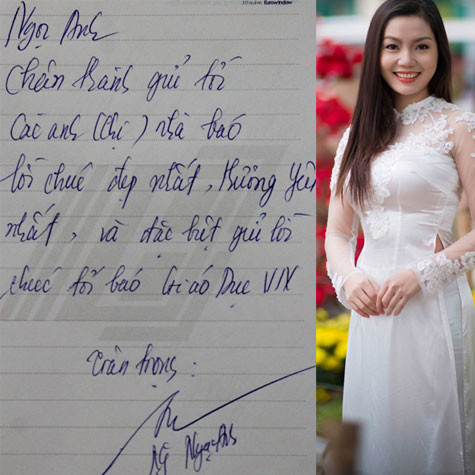 Eurowindow
Ngọc Anh
Chân thành gửi tới
Các anh (chị) nhà báo
lời chúc đẹp nhất, thương yêu
nhất, và đặc biệt gửi lời
chúc tới báo Giáo Dục VN
Trân trọng:
Ngọc Anh